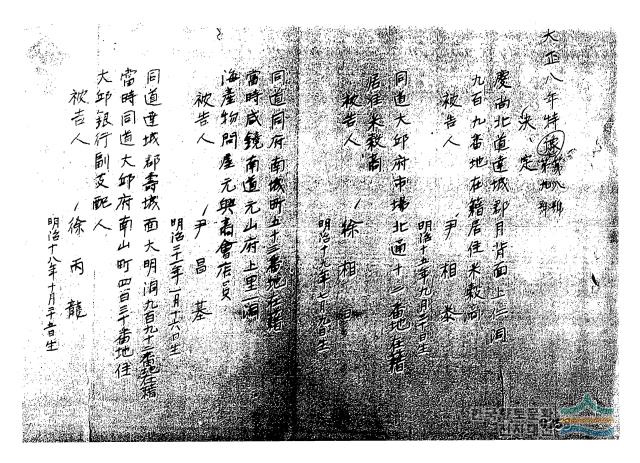 大正八年特豫第八號
決定
慶尚北道達城郡月背面上仁洞
九百九番地在籍居住米穀商
被告人 尹相泰
明治十五年九月二十日生
同道大邱府市場北通十二番地在籍
居住米穀商
被告人 徐相日
明治十九年七月日生
同道同府南城町五十三番地在籍
當時咸鏡南道元山府上里一洞
海産物問屋元興商會店員
被告人 尹昌基
明治三十一年一月十六日生
同道達城郡壽城面大明洞九百九十二番地在籍
當時同道大邱府南山町四百三十番地住
大邱銀行副支配人
被告人 徐丙龍
明治十八年十月二十五日生
한국향토문화
전자대전